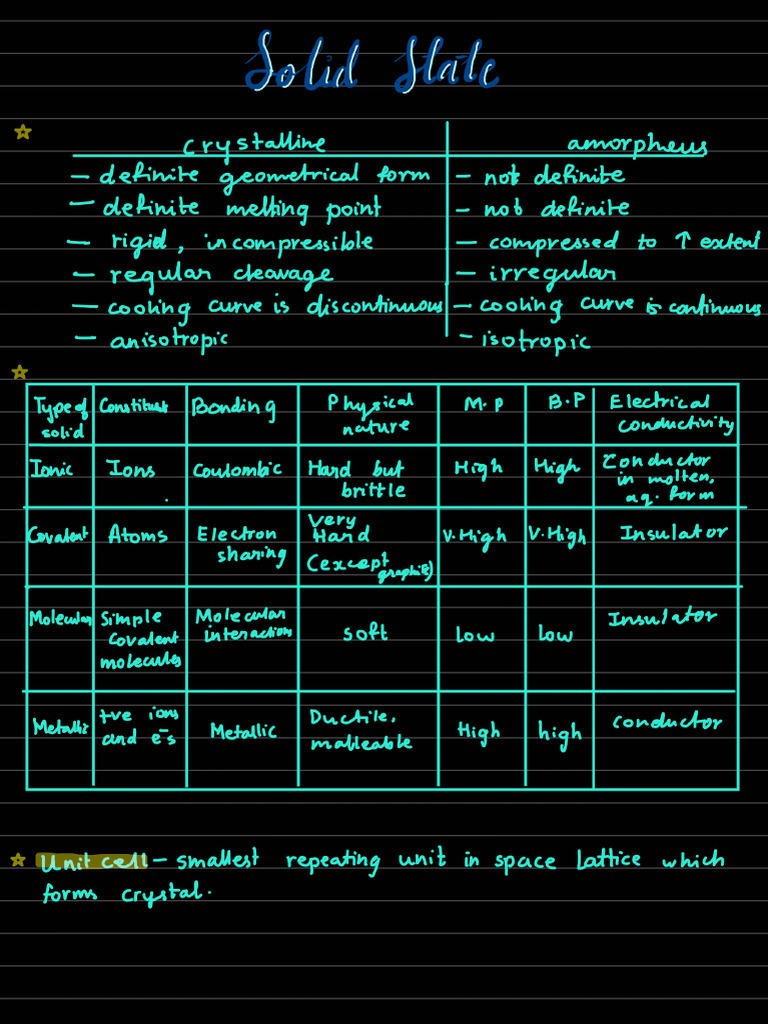 Solid State
crystalline
amorpheus
– definite geometrical form
– not definite
– definite melting point
– not definite
– rigid, incompressible
– compressed to ↑ extent
– regular cleavage
– irregular
– cooling curve is discontinuous
– cooling curve is continuous
– anisotropic
– isotropic
Type of
solid
Constitust
Bonding
Physical
nature
M.P
B.P
Electrical
conductivity
Ionic
Ions
Coulombic
Hard but
brittle
High
High
Conductor
in molten,
aq. form
Covalent
Atoms
Electron
sharing
Very
Hard
(except
graphite)
V.High
V.High
Insulator
Molecular
Simple
Covalent
molecules
Molecular
interaction
soft
Low
Low
Insulator
Metallic
+ve ions
and e⁻s
Metallic
Ductile,
malleable
High
high
conductor
Unit cell – smallest repeating unit in space lattice which
forms crystal.